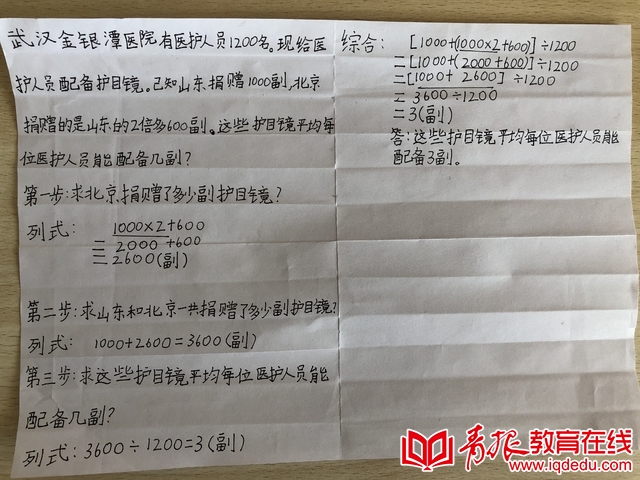 武汉金银潭医院有医护人员1200名。现给医
护人员配备护目镜。已知山东捐赠1000副,北京
捐赠的是山东的2倍多600副。这些护目镜平均每
位医护人员能配备几副?
第一步:求北京捐赠了多少副护目镜?
列式: 1000×2+600
=2000+600
=2600(副)
第二步:求山东和北京一共捐赠了多少副护目镜?
列式: 1000+2600=3600(副)
第三步:求这些护目镜平均每位医护人员能
配备几副?
列式:3600÷1200=3(副)
综合: [1000+(1000×2+600)]÷1200
=[1000+(2000+600)]÷1200
=[1000+2600]÷1200
=3600÷1200
=3(副)
答:这些护目镜平均每位医护人员能
配备3副。
青报教育在线
www.iqdedu.com